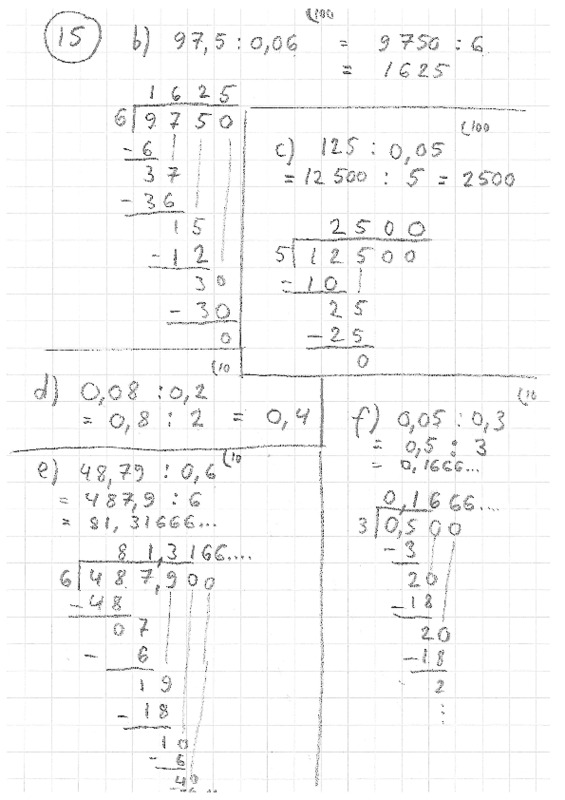 15
b) 97,5 : 0,06 = 9750 : 6
(100
= 1625
1 6 2 5
6 9 7 5 0
- 6
3 7
- 3 6
1 5
- 1 2
3 0
- 3 0
0
c) 125 : 0,05
(100
= 12500 : 5 = 2500
2 5 0 0
5 1 2 5 0 0
- 1 0
2 5
- 2 5
0
d) 0,08 : 0,2
(10
= 0,8 : 2 = 0,4
e) 48,79 : 0,6
(10
= 487,9 : 6
= 81,31666...
8 1,3 1 6 6 ....
6 4 8 7,9 0 0
- 4 8
0 7
- 6
1 9
- 1 8
1 0
- 6
4 0
f) 0,05 : 0,3
(10
= 0,5 : 3
= 0,1666...
0,1 6 6 6 ....
3 0,5 0 0
- 3
2 0
- 1 8
2 0
- 1 8
2
: